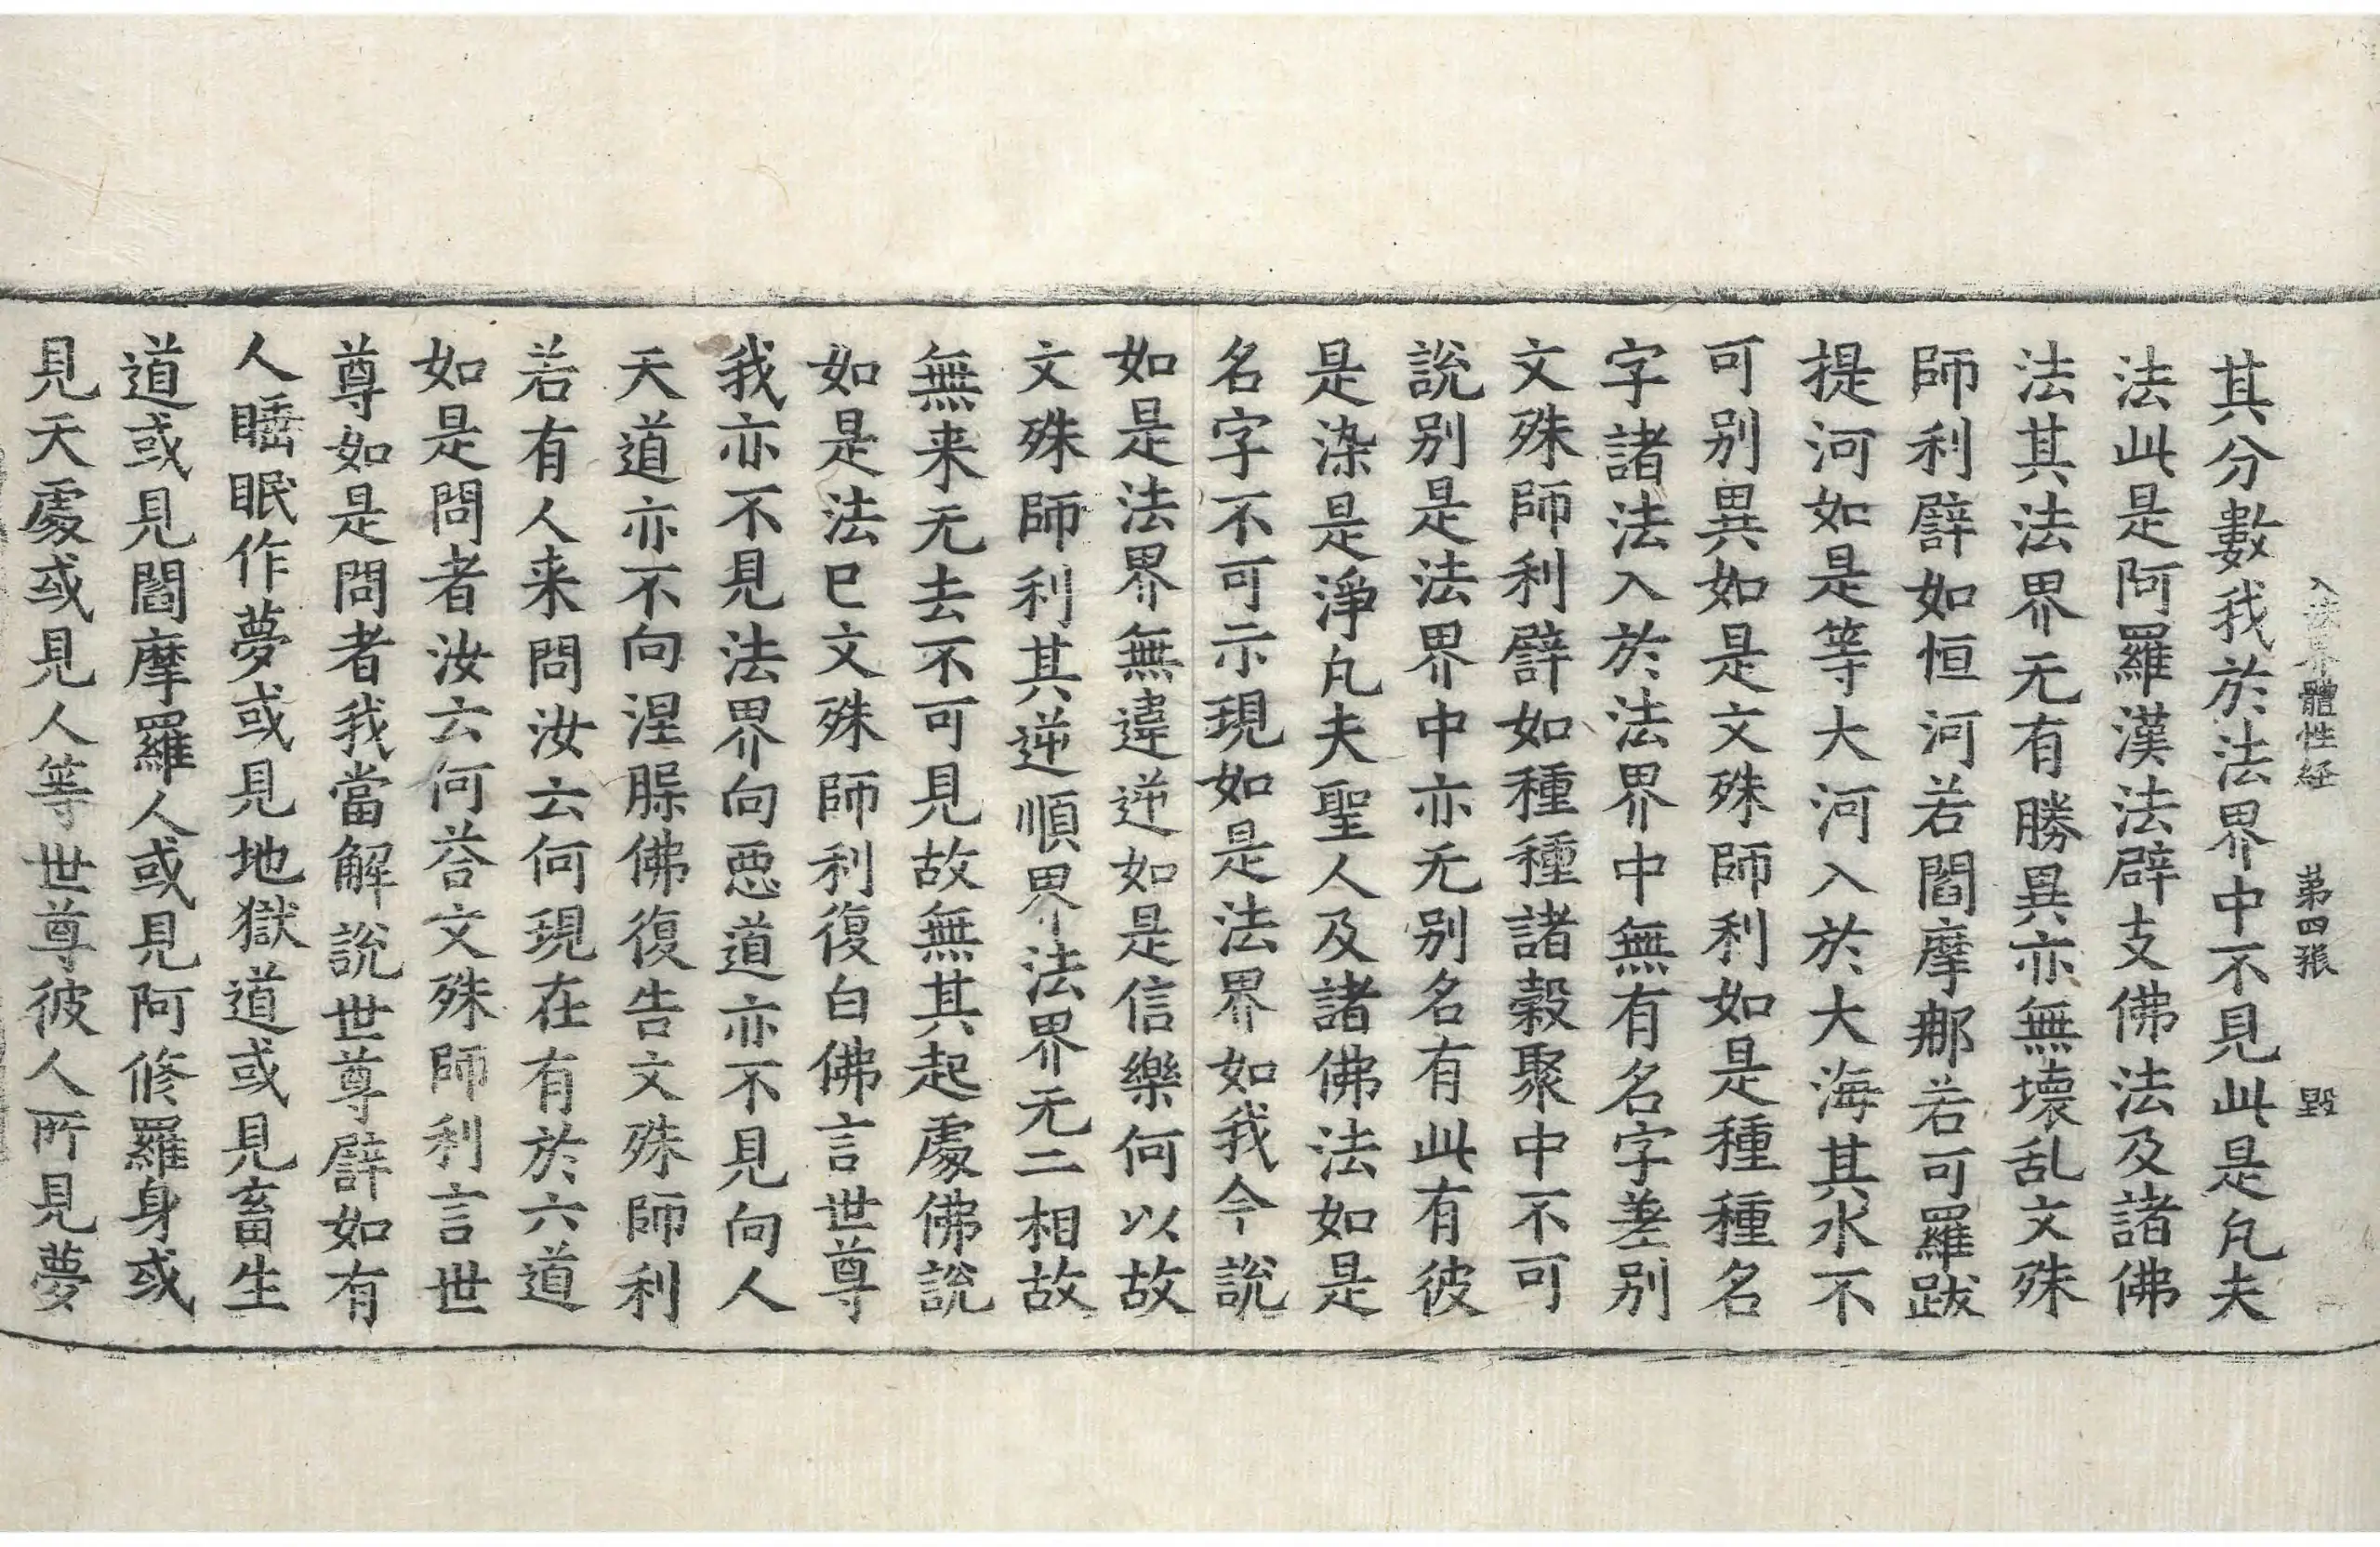 入法界體性経 苐四張 毀
其分數我於法界中不見此是凡夫
法此是阿羅漢法辟支佛法及諸佛
法其法界无有勝異亦無壊乱文殊
師利譬如恒河若閻摩那若可羅跋
提河如是等大河入於大海其水不
可别異如是文殊師利如是種種名
字諸法入於法界中無有名字差别
文殊師利譬如種種諸穀聚中不可
說别是法界中亦无别名有此有彼
是染是淨凡夫聖人及諸佛法如是
名字不可示現如是法界如我今說
如是法界無違逆如是信樂何以故
文殊師利其逆順界法界无二相故
無来无去不可見故無其起處佛說
如是法已文殊師利復白佛言世尊
我亦不見法界向惡道亦不見向人
天道亦不向涅槃佛復告文殊師利
若有人来問汝云何現在有於六道
如是問者汝云何荅文殊師利言世
尊如是問者我當解說世尊譬如有
人睡眠作夢或見地獄道或見畜生
道或見閻摩羅人或見阿修羅身或
見天處或見人等世尊彼人所見夢